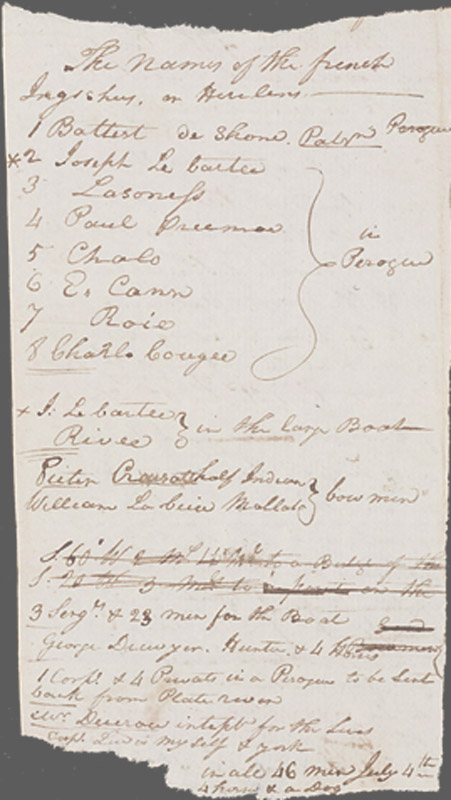 The Names of the french
Ingishees, or Herelens
1 Battist de Shone. Patrn Perogue
*2 Joseph Le bartee
3 Lasoness
4 Paul Preemor
5 Chalo
6 E. Cann
7 Roie
8 Charlo Cougee
in
Perogue
x J. Le bartee
Rivee
in the large Boat
Pieter Crousatt half Indian
William La beice Mallato
bow men
3 Sergts & 23 men for the Boat
George Drewyer. Hunter & 4 Horses
1 Corpl & 4 Privates in a Perogue to be Sent
back from Plate river
Mr. Dueron inteptr for the Sues
Capt. Lewis my Self & york
in all 46 men July 4th
4 horses & a Dog